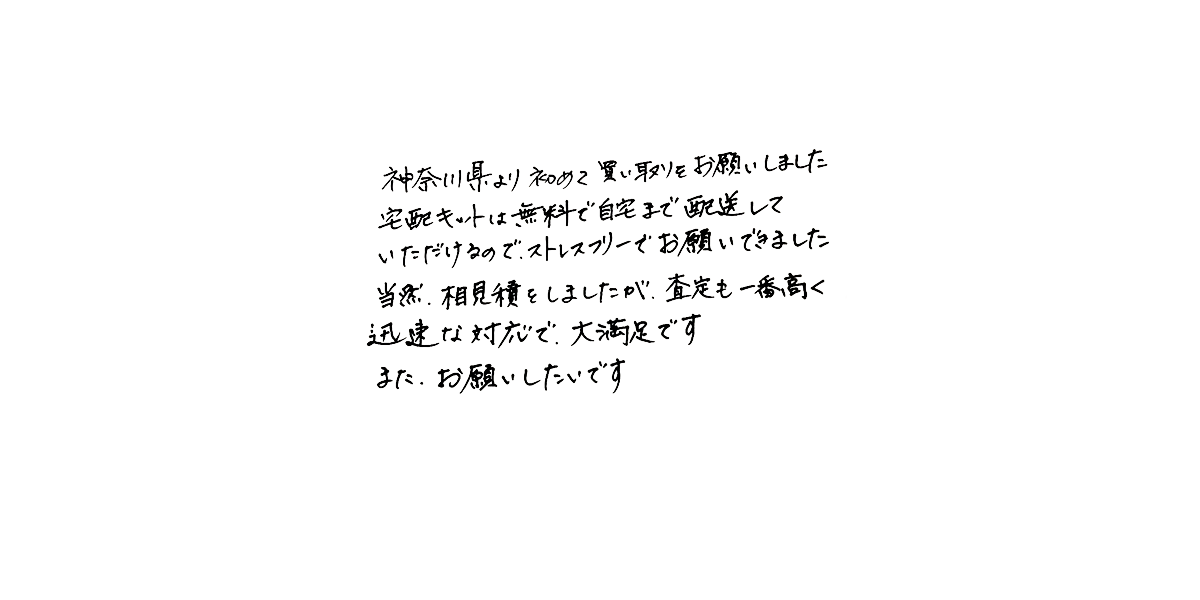 神奈川県より初めて買い取りをお願いしました
宅配キットは無料で自宅まで配送して
いただけるので、ストレスフリーでお願いできました
当然、相見積をしましたが、査定も一番高く
迅速な対応で、大満足です
また、お願いしたいです